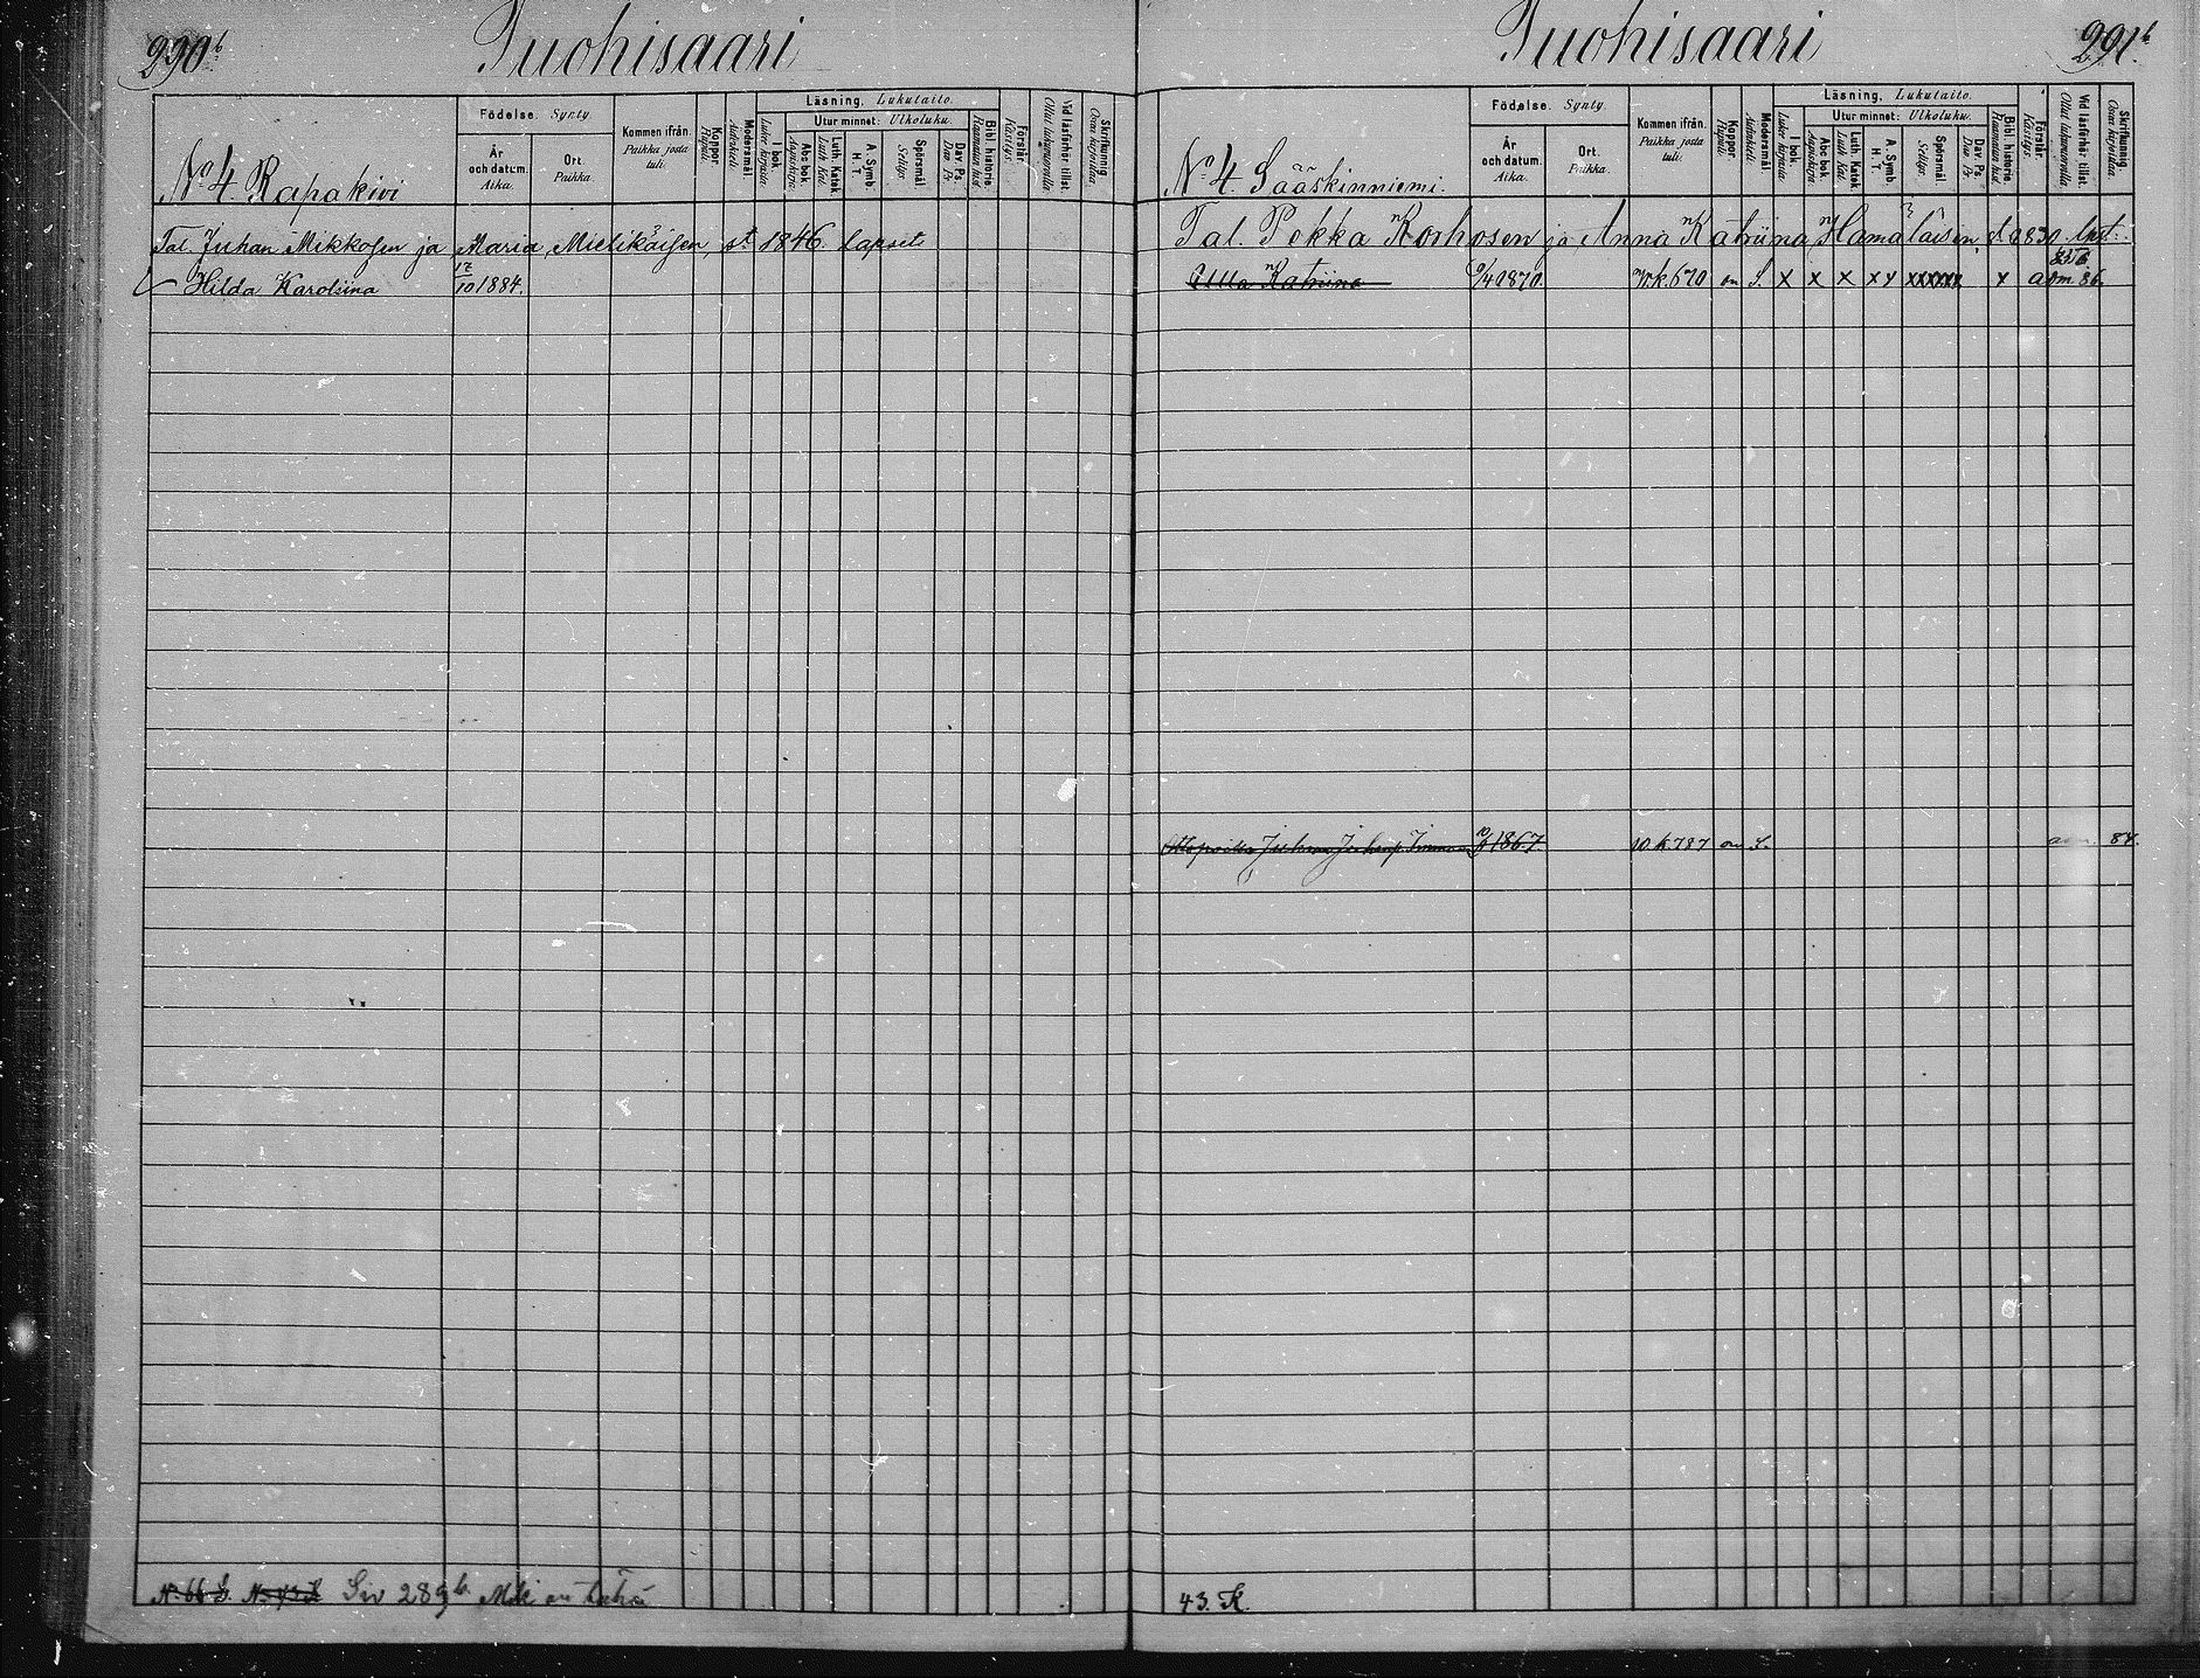 290b.
Tuohisaari
Födelse. Synty.
Kommen ifrån. Paikka josta tuli.
Koppor. Rupuli.
Modersmål. Äidinkieli.
Läsning, Lukutaito.
I bok. Lukee kirjasta.
Utur minnet: Ulkoluku.
Abc bok. Aapiskirja.
Luth. Katek. Luth. Kat.
A. Symb. H. T.
Spörsmål. Selitys.
Dav. Ps. Dav. Ps.
Bibl. historie. Raamatun hist.
Förstår. Käsitys.
Vid läsförhör tillst. Ollut lukuvuorolla
Skrifkunnig. Osaa kirjoittaa
År och datum. Aika.
Ort. Paikka.
No 4. Rapakivi
Tal. Juhan Mikkosen ja Maria Mielikäisen, st. 1846. lapset
Hilda Karoliina 17/10 1884.
No 66 S. Siv 289b.
291b.
Tuohisaari
Födelse. Synty.
Kommen ifrån. Paikka josta tuli.
Koppor. Rupuli.
Modersmål. Äidinkieli.
Läsning, Lukutaito.
I bok. Lukee kirjasta.
Utur minnet: Ulkoluku.
Abc bok. Aapiskirja.
Luth. Katek. Luth. Kat.
A. Symb. H. T.
Spörsmål. Selitys.
Dav. Ps. Dav. Ps.
Bibl. historie. Raamatun hist.
Förstår. Käsitys.
Vid läsförhör tillst. Ollut lukuvuorolla
Skrifkunnig. Osaa kirjoittaa
År och datum. Aika.
Ort. Paikka.
No 4. Sääskinniemi.
Tal. Pekka Korhosen ja Anna Katriina Hämäläisen 1830 lapset
Ulla Katriina 9/4 1870. k. 670 on S. x x x x y xxxxxx x adm. 86.
Juhana 1867. 10. k. 787 on S. 84.
43. K.